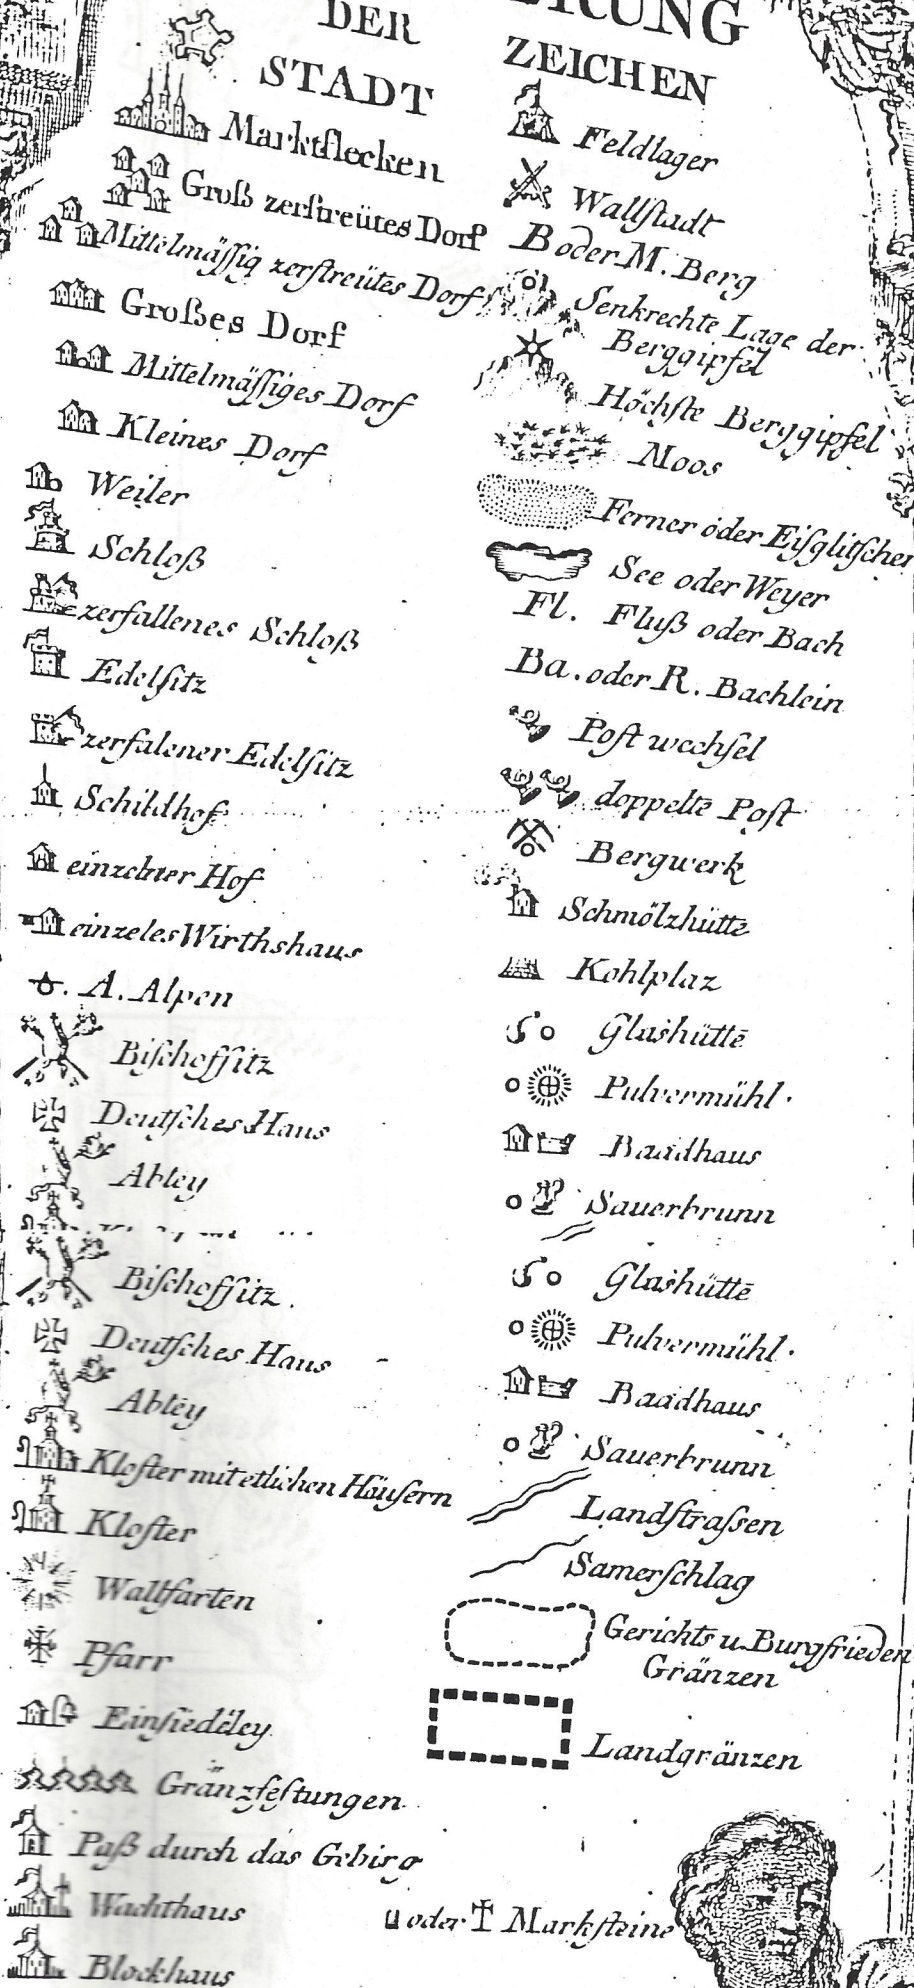 DER
ZEICHEN
STADT
Marktflecken
Groß zerstreütes Dorf
Mittelmässig zerstreütes Dorf
Großes Dorf
Mittelmässiges Dorf
Kleines Dorf
Weiler
Schloß
zerfallenes Schloß
Edelsitz
zerfalener Edelsitz
Schildhof
einzelner Hof
einzeles Wirthshaus
A. Alpen
Bischoffsitz
Deutsches Haus
Abtey
Bischoffsitz.
Deutsches Haus
Abtey
Kloster mit etlichen Häusern
Kloster
Wallfarten
Pfarr
Einsiedeley
Gränzfestungen
Paß durch das Gebirg
Wachthaus
Blockhaus
Feldlager
Wallstadt
B oder M. Berg
Senkrechte Lage der
Berggipfel
Höchste Berggipfel
Moos
Ferner oder Eisglitscher
See oder Weyer
Fl. Fluß oder Bach
Ba. oder R. Bachlein
Postwechsel
doppelte Post
Bergwerk
Schmölzhütte
Kohlplaz
Glashütte
Pulvermühl.
Baadhaus
Sauerbrunn
Glashütte
Pulvermühl.
Baadhaus
Sauerbrunn
Landstrassen
Samerschlag
Gerichts u. Burgfrieden
Gränzen
Landgränzen
oder Marksteine